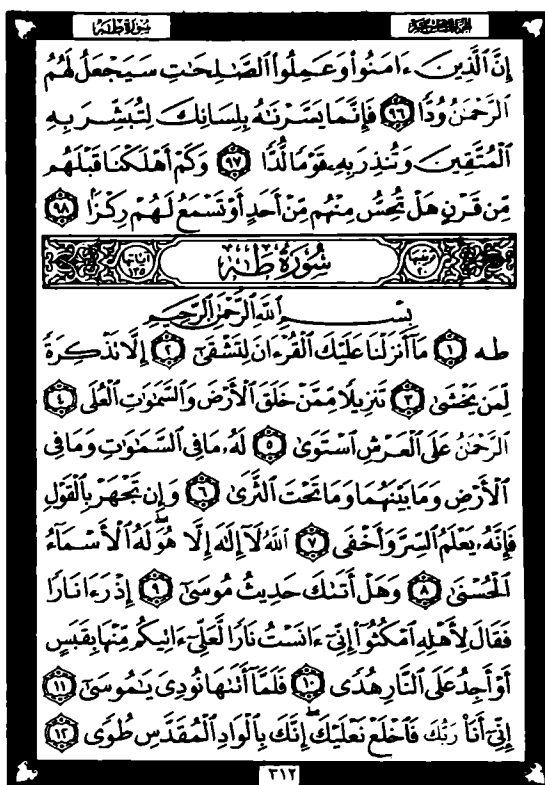 سورة طه الجزء السادس عشر
إِنَّ ٱلَّذِينَ ءَامَنُوا۟ وَعَمِلُوا۟ ٱلصَّـٰلِحَـٰتِ سَيَجْعَلُ لَهُمُ
ٱلرَّحْمَـٰنُ وُدًّا ٩٦ فَإِنَّمَا يَسَّرْنَـٰهُ بِلِسَانِكَ لِتُبَشِّرَ بِهِ
ٱلْمُتَّقِينَ وَتُنذِرَ بِهِۦ قَوْمًا لُّدًّا ٩٧ وَكَمْ أَهْلَكْنَا قَبْلَهُم
مِّن قَرْنٍ هَلْ تُحِسُّ مِنْهُم مِّنْ أَحَدٍ أَوْ تَسْمَعُ لَهُمْ رِكْزًۢا ٩٨
ترتيبها ٢٠ سُورَةُ طه آياتها ١٣٥
بِسْمِ ٱللَّهِ ٱلرَّحْمَـٰنِ ٱلرَّحِيمِ
طه ١ مَآ أَنزَلْنَا عَلَيْكَ ٱلْقُرْءَانَ لِتَشْقَىٰٓ ٢ إِلَّا تَذْكِرَةً
لِّمَن يَخْشَىٰ ٣ تَنزِيلًا مِّمَّنْ خَلَقَ ٱلْأَرْضَ وَٱلسَّمَـٰوَٰتِ ٱلْعُلَى ٤
ٱلرَّحْمَـٰنُ عَلَى ٱلْعَرْشِ ٱسْتَوَىٰ ٥ لَهُۥ مَا فِى ٱلسَّمَـٰوَٰتِ وَمَا فِى
ٱلْأَرْضِ وَمَا بَيْنَهُمَا وَمَا تَحْتَ ٱلثَّرَىٰ ٦ وَإِن تَجْهَرْ بِٱلْقَوْلِ
فَإِنَّهُۥ يَعْلَمُ ٱلسِّرَّ وَأَخْفَى ٧ ٱللَّهُ لَآ إِلَـٰهَ إِلَّا هُوَ ۖ لَهُ ٱلْأَسْمَآءُ
ٱلْحُسْنَىٰ ٨ وَهَلْ أَتَىٰكَ حَدِيثُ مُوسَىٰٓ ٩ إِذْ رَءَا نَارًا
فَقَالَ لِأَهْلِهِ ٱمْكُثُوٓا۟ إِنِّىٓ ءَانَسْتُ نَارًا لَّعَلِّىٓ ءَاتِيكُم مِّنْهَا بِقَبَسٍ
أَوْ أَجِدُ عَلَى ٱلنَّارِ هُدًى ١٠ فَلَمَّآ أَتَىٰهَا نُودِىَ يَـٰمُوسَىٰٓ ١١
إِنِّىٓ أَنَا۠ رَبُّكَ فَٱخْلَعْ نَعْلَيْكَ ۖ إِنَّكَ بِٱلْوَادِ ٱلْمُقَدَّسِ طُوًى ١٢
٣١٢